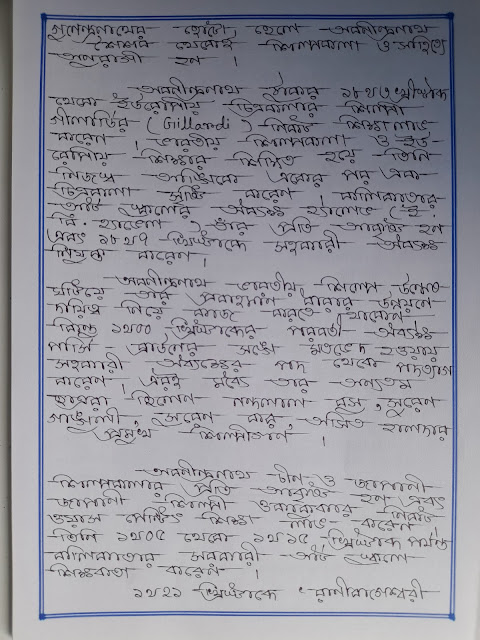 গুণেন্দ্রনাথের ছোটো ছেলে অবনীন্দ্রনাথ
শৈশব থেকেই শিল্পকলা ও সাহিত্যে
অনুরাগী হন ।
অবনীন্দ্রনাথ ঠাকুর ১৮৭৬ খ্রীষ্টাব্দে
থেকে ইউরোপীয় চিত্রকলার শিল্পী
গীলার্ডির (Gillardi) নিকট শিক্ষা লাভ
করেন । ভারতীয় শিল্পকলা ও ইউ-
রোপীয় শিক্ষায় শিক্ষিত হয়ে তিনি
নিজস্ব আঙ্গিকে একের পর এক
চিত্রকলা সৃষ্টি করেন কলিকাতার
আর্ট স্কুলের অধ্যক্ষ হ্যাভেল (ই.
বি. হ্যাভেল) তাঁর প্রতি আকৃষ্ট হন
এবং ১৮৯৭ খ্রিষ্টাব্দে সহকারী অধ্যক্ষ
নিযুক্ত করেন ।
অবনীন্দ্রনাথ ভারতীয় শিল্পে উন্নত
ঘটিয়ে তার প্রবাহমান ধারার উন্নয়নে
দায়িত্ব নিয়ে কাজ করতে থাকেন
কিন্তু ১৯০০ খ্রিষ্টাব্দের পরবর্তী অধ্যক্ষ
পার্সি ব্রাউনের সঙ্গে মতভেদ হওয়ায়
সহকারী অধ্যক্ষের পদ থেকে পদত্যাগ
করেন । এরই মধ্যে তার অন্যতম
ছাত্ররা ছিলেন নন্দলাল বসু, সুরেন
গাঙ্গুলী, সুরেন কর, অসিত হালদার
প্রমুখ শিল্পীগণ ।
অবনীন্দ্রনাথ চীন ও জাপানী
শিল্পকলার প্রতি আকৃষ্ট হন এবং
জাপানী শিল্পী ওকাকুরার নিকট
ওয়াস পেন্টিং শিক্ষা লাভ করেন
তিনি ১৯০৫ থেকে ১৯১৫ খ্রিষ্টাব্দ পর্যন্ত
কলিকাতার সরকারী আর্ট স্কুলে
শিক্ষকতা করেন ।
১৯২১ খ্রিষ্টাব্দে রানীবাগেশ্বরী